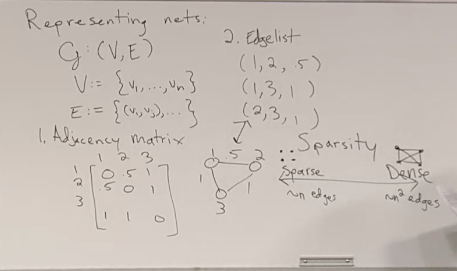 Representing nets:
G: (V,E)
V := {v₁,...,vₙ}
E := {(vᵢ,vⱼ),...}
1. Adjacency matrix
1 2 3
1 0 .5 1
2 .5 0 1
3 1 1 0
2. Edgelist
(1,2, .5)
(1,3, 1)
(2,3, 1)
1 .5 2
1 1
3
Sparsity
Sparse Dense
~n edges ~n² edges